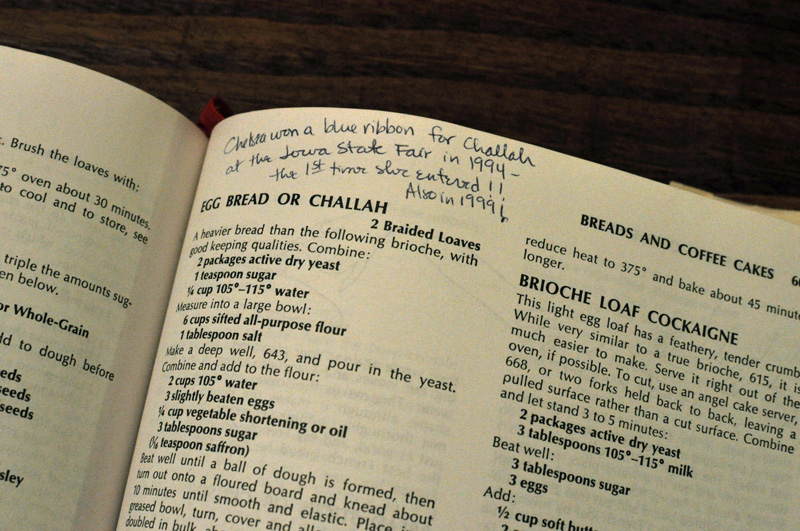 . Brush the loaves with:
75° oven about 30 minutes.
to cool and to store, see
triple the amounts sug-
en below.
or Whole-Grain
dd to dough before
eds
seeds
seeds
sley
Chelsea won a blue ribbon for Challah
at the Iowa State Fair in 1994 -
the 1st time she entered!!
Also in 1999!
EGG BREAD OR CHALLAH
2 Braided Loaves
A heavier bread than the following brioche, with
good keeping qualities. Combine:
2 packages active dry yeast
1 teaspoon sugar
¼ cup 105°–115° water
Measure into a large bowl:
6 cups sifted all-purpose flour
1 tablespoon salt
Make a deep well, 643, and pour in the yeast.
Combine and add to the flour:
2 cups 105° water
3 slightly beaten eggs
¼ cup vegetable shortening or oil
3 tablespoons sugar
(⅛ teaspoon saffron)
Beat well until a ball of dough is formed, then
turn out onto a floured board and knead about
10 minutes until smooth and elastic. Place in
greased bowl, turn, cover and
doubled in bulk,
BREADS AND COFFEE CAKES
reduce heat to 375° and bake about 45 minute
longer.
BRIOCHE LOAF COCKAIGNE
This light egg loaf has a feathery, tender crumb
While very similar to a true brioche, 615, it is
much easier to make. Serve it right out of the
oven, if possible. To cut, use an angel cake server,
668, or two forks held back to back, leaving a
pulled surface rather than a cut surface. Combine
and let stand 3 to 5 minutes:
2 packages active dry yeast
3 tablespoons 105°–115° milk
Beat well:
3 tablespoons sugar
3 eggs
Add:
½ cup soft